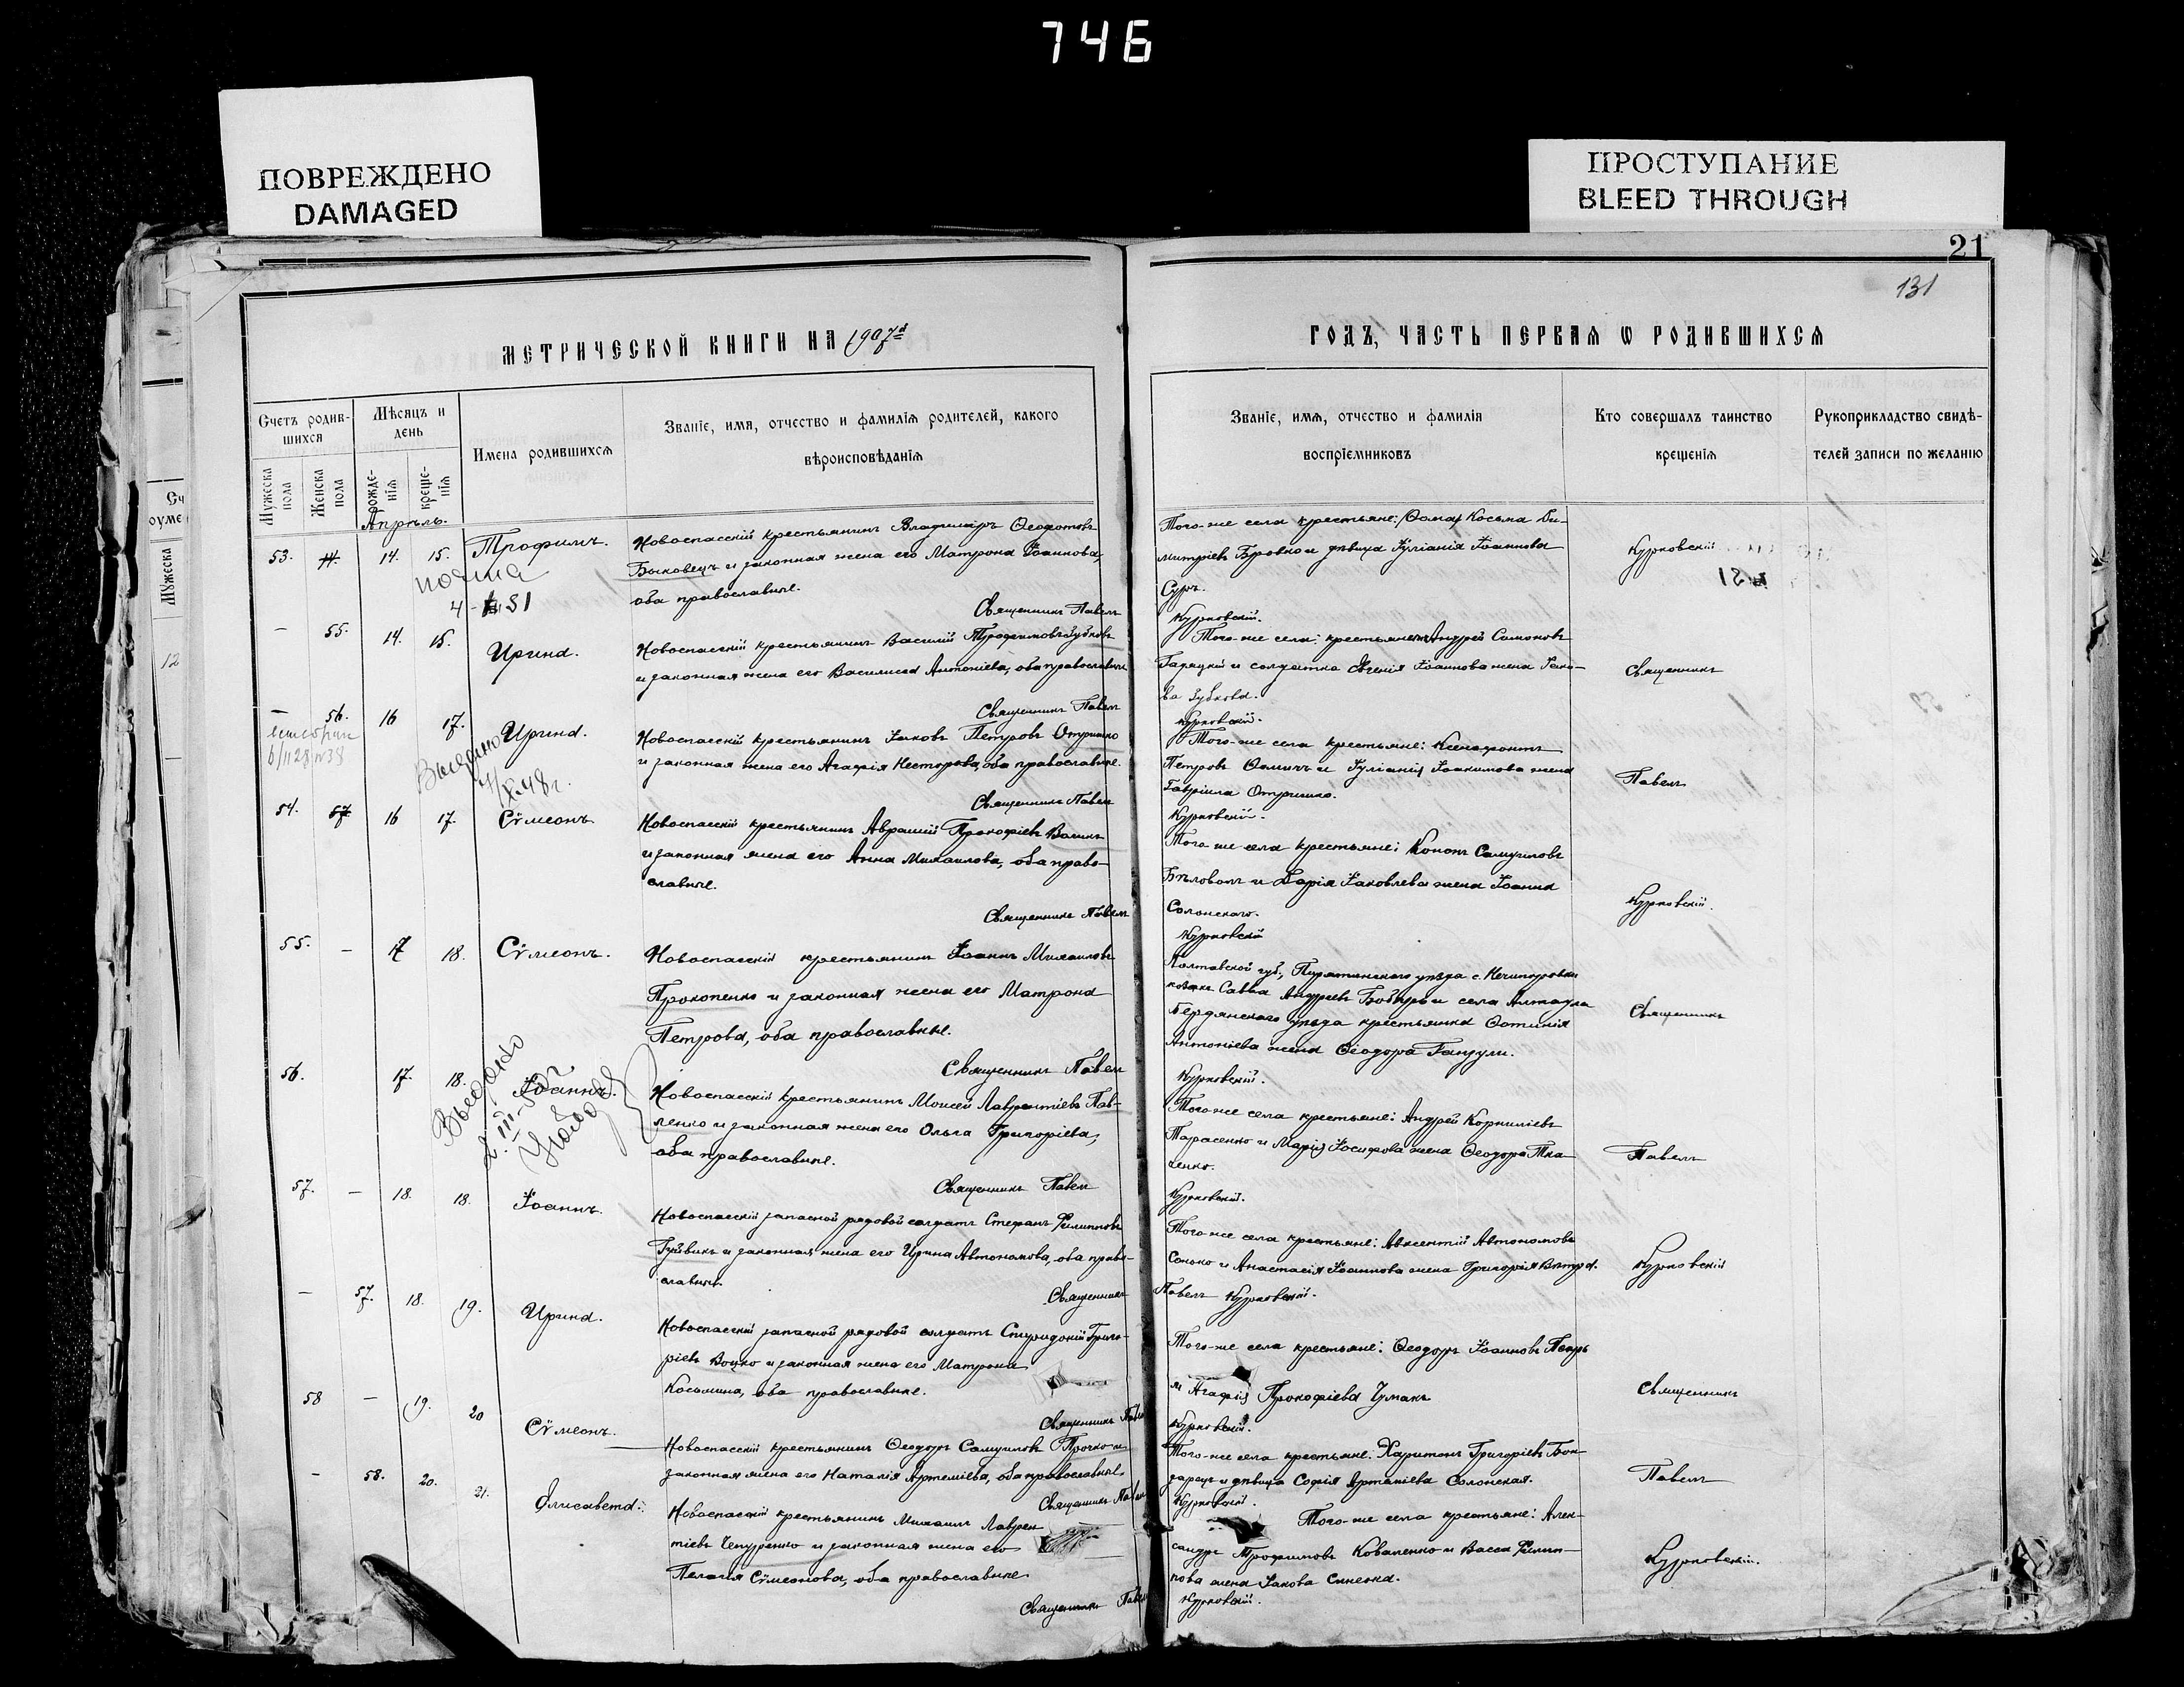 746
ПОВРЕЖДЕНО
DAMAGED
ПРОСТУПАНИЕ
BLEED THROUGH
21
131
МЕТРИЧЕСКОЙ КНИГИ НА 1907й
ГОДЪ, ЧАСТЬ ПЕРВАЯ Ѡ РОДИВШИХСЯ
Счетъ родив-
шихся
Мѣсяцъ и
день
Имена родившихся
Званіе, имя, отчество и фамилія родителей, какого
вѣроисповѣданія
Мужеска
пола
Женска
пола
рожде-
нія
креще-
нія
Званіе, имя, отчество и фамилія
воспріемниковъ
Кто совершалъ таинство
крещенія
Рукоприкладство свидѣ-
телей записи по желанію
Апрѣль.
53. 14. 15. Трофимъ.
Новоспасскій крестьянинъ Владиміръ Ѳеодотовъ
Быковецъ и законная жена его Матрона Іоаннова,
оба православные.
Священникъ Павелъ
Того-же села крестьяне: Косьма Ди-
митріевъ Бровко и дѣвица Іуліанія Іоаннова
Суръ.
Курковскій.
Курковскій
— 55. 14. 15. Ирина.
Новоспасскій крестьянинъ Василій Трофимовъ Зубковъ
и законная жена его Василиса Антоніева, оба православные
Священникъ Павелъ
Того-же села: Андрей Симоновъ
и солдатка Евгенія Іоаннова жена Яко-
ва Зубкова.
Курковскій.
Священникъ
— 56. 16 17. Ирина.
Выдано
Новоспасскій крестьянинъ Іаковъ Петровъ Отришко
и законная жена его Агафія Несторова, оба православные.
Священникъ Павелъ
Того-же села крестьяне: Ксенофонтъ
Петровъ Ѳомичъ и Іуліанія Іоакимова жена
Гавріила Отришко.
Курковскій.
Павелъ
54. 57 16 17. Сѵмеонъ
Новоспасскій крестьянинъ Аврамій Прокофіевъ
и законная жена его Анна Михаилова, оба право-
славные.
Священникъ Павелъ
Того-же села крестьяне: Кононъ Самуиловъ
Бѣловолъ и Дарія Іаковлева жена Іоанна
Солонскаго.
Курковскій
Курковскій.
55. — 17 18. Сѵмеонъ.
Новоспасскій крестьянинъ Іоаннъ Михаиловъ
Прокопенко и законная жена его Матрона
Петрова, оба православные.
Священникъ Павелъ
Полтавской губ., Пирятинскаго уѣзда с. Нечипоровки
козакъ Савва Андреевъ Бобырь и села Алтаула
Бердянскаго уѣзда крестьянка Фотинія
Антоніева жена Ѳеодора Ганзули.
Курковскій.
Священникъ
56. 17. 18. Іоаннъ.
Выдано
Новоспасскій крестьянинъ Моисей Лаврентіевъ Пав-
ленко и законная жена его Ольга Григоріева,
оба православные.
Священникъ Павелъ
Того-же села крестьяне: Андрей Корниліевъ
Тарасенко и Марія Іосифова жена Ѳеодора Тка-
ченко.
Курковскій.
Павелъ
57. — 18. 18. Іоаннъ.
Новоспасскій запасной рядовой солдатъ Стефанъ Филипповъ
Гуйвикъ и законная жена его Ирина Автономова, оба право-
славные.
Священникъ
Того-же села крестьяне: Авксентій Автономовъ
Сенько и Анастасія Іоаннова жена Григорія
Павелъ Курковскій.
Курковскій
— 57. 18. 19. Ирина.
Новоспасскій запасной рядовой солдатъ Спиридоній Григо-
ріевъ Воцко и законная жена его Матрона
Косьмина, оба православные.
Священникъ Павелъ
Того-же села крестьяне: Ѳеодоръ Іоанновъ
и Агафія Прокофіева Чумакъ
Курковскій.
Священникъ
58 — 19. 20 Сѵмеонъ.
Новоспасскій крестьянинъ Ѳеодоръ Самуиловъ и
законная жена его Наталія Артеміева, оба православные.
Священникъ Павелъ
Того-же села крестьяне: Харитонъ Григоріевъ Бон-
дарецъ и дѣвица Софія Артеміева Солонская.
Курковскій.
Павелъ
— 58. 20. 21. Елисавета.
Новоспасскій крестьянинъ Михаилъ Лаврен
тіевъ Чепуренко и законная жена его
Пелагія Сѵмеонова, оба православные
Священникъ Павелъ
Того-же села крестьяне: Алек-
сандръ Трофимовъ Коваленко и Васса Филип-
пова жена Іакова Синенка.
Курковскій.
Курковскій.